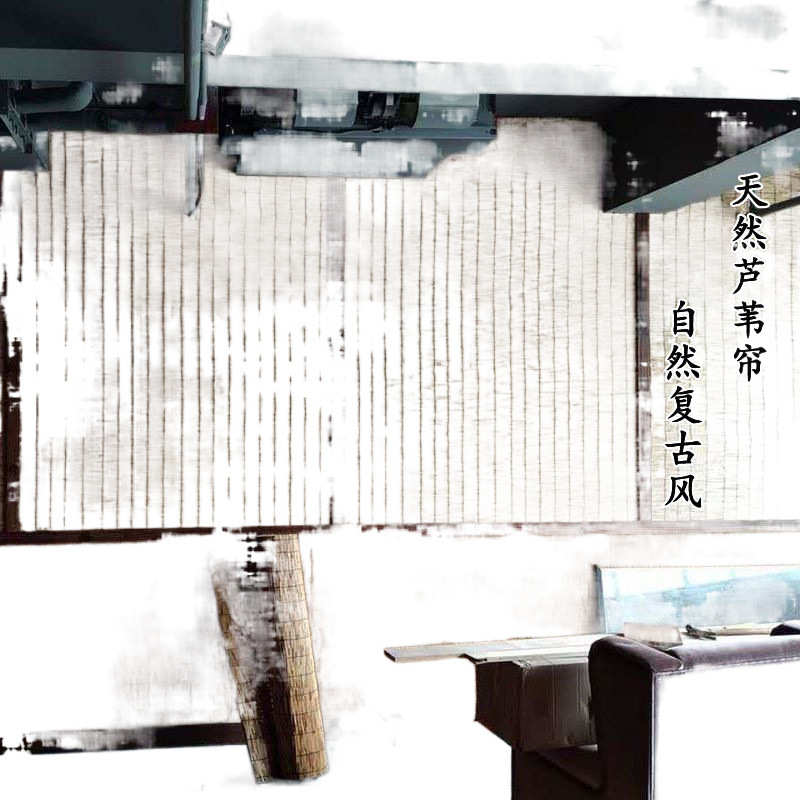 天然芦苇帘
自然复古风